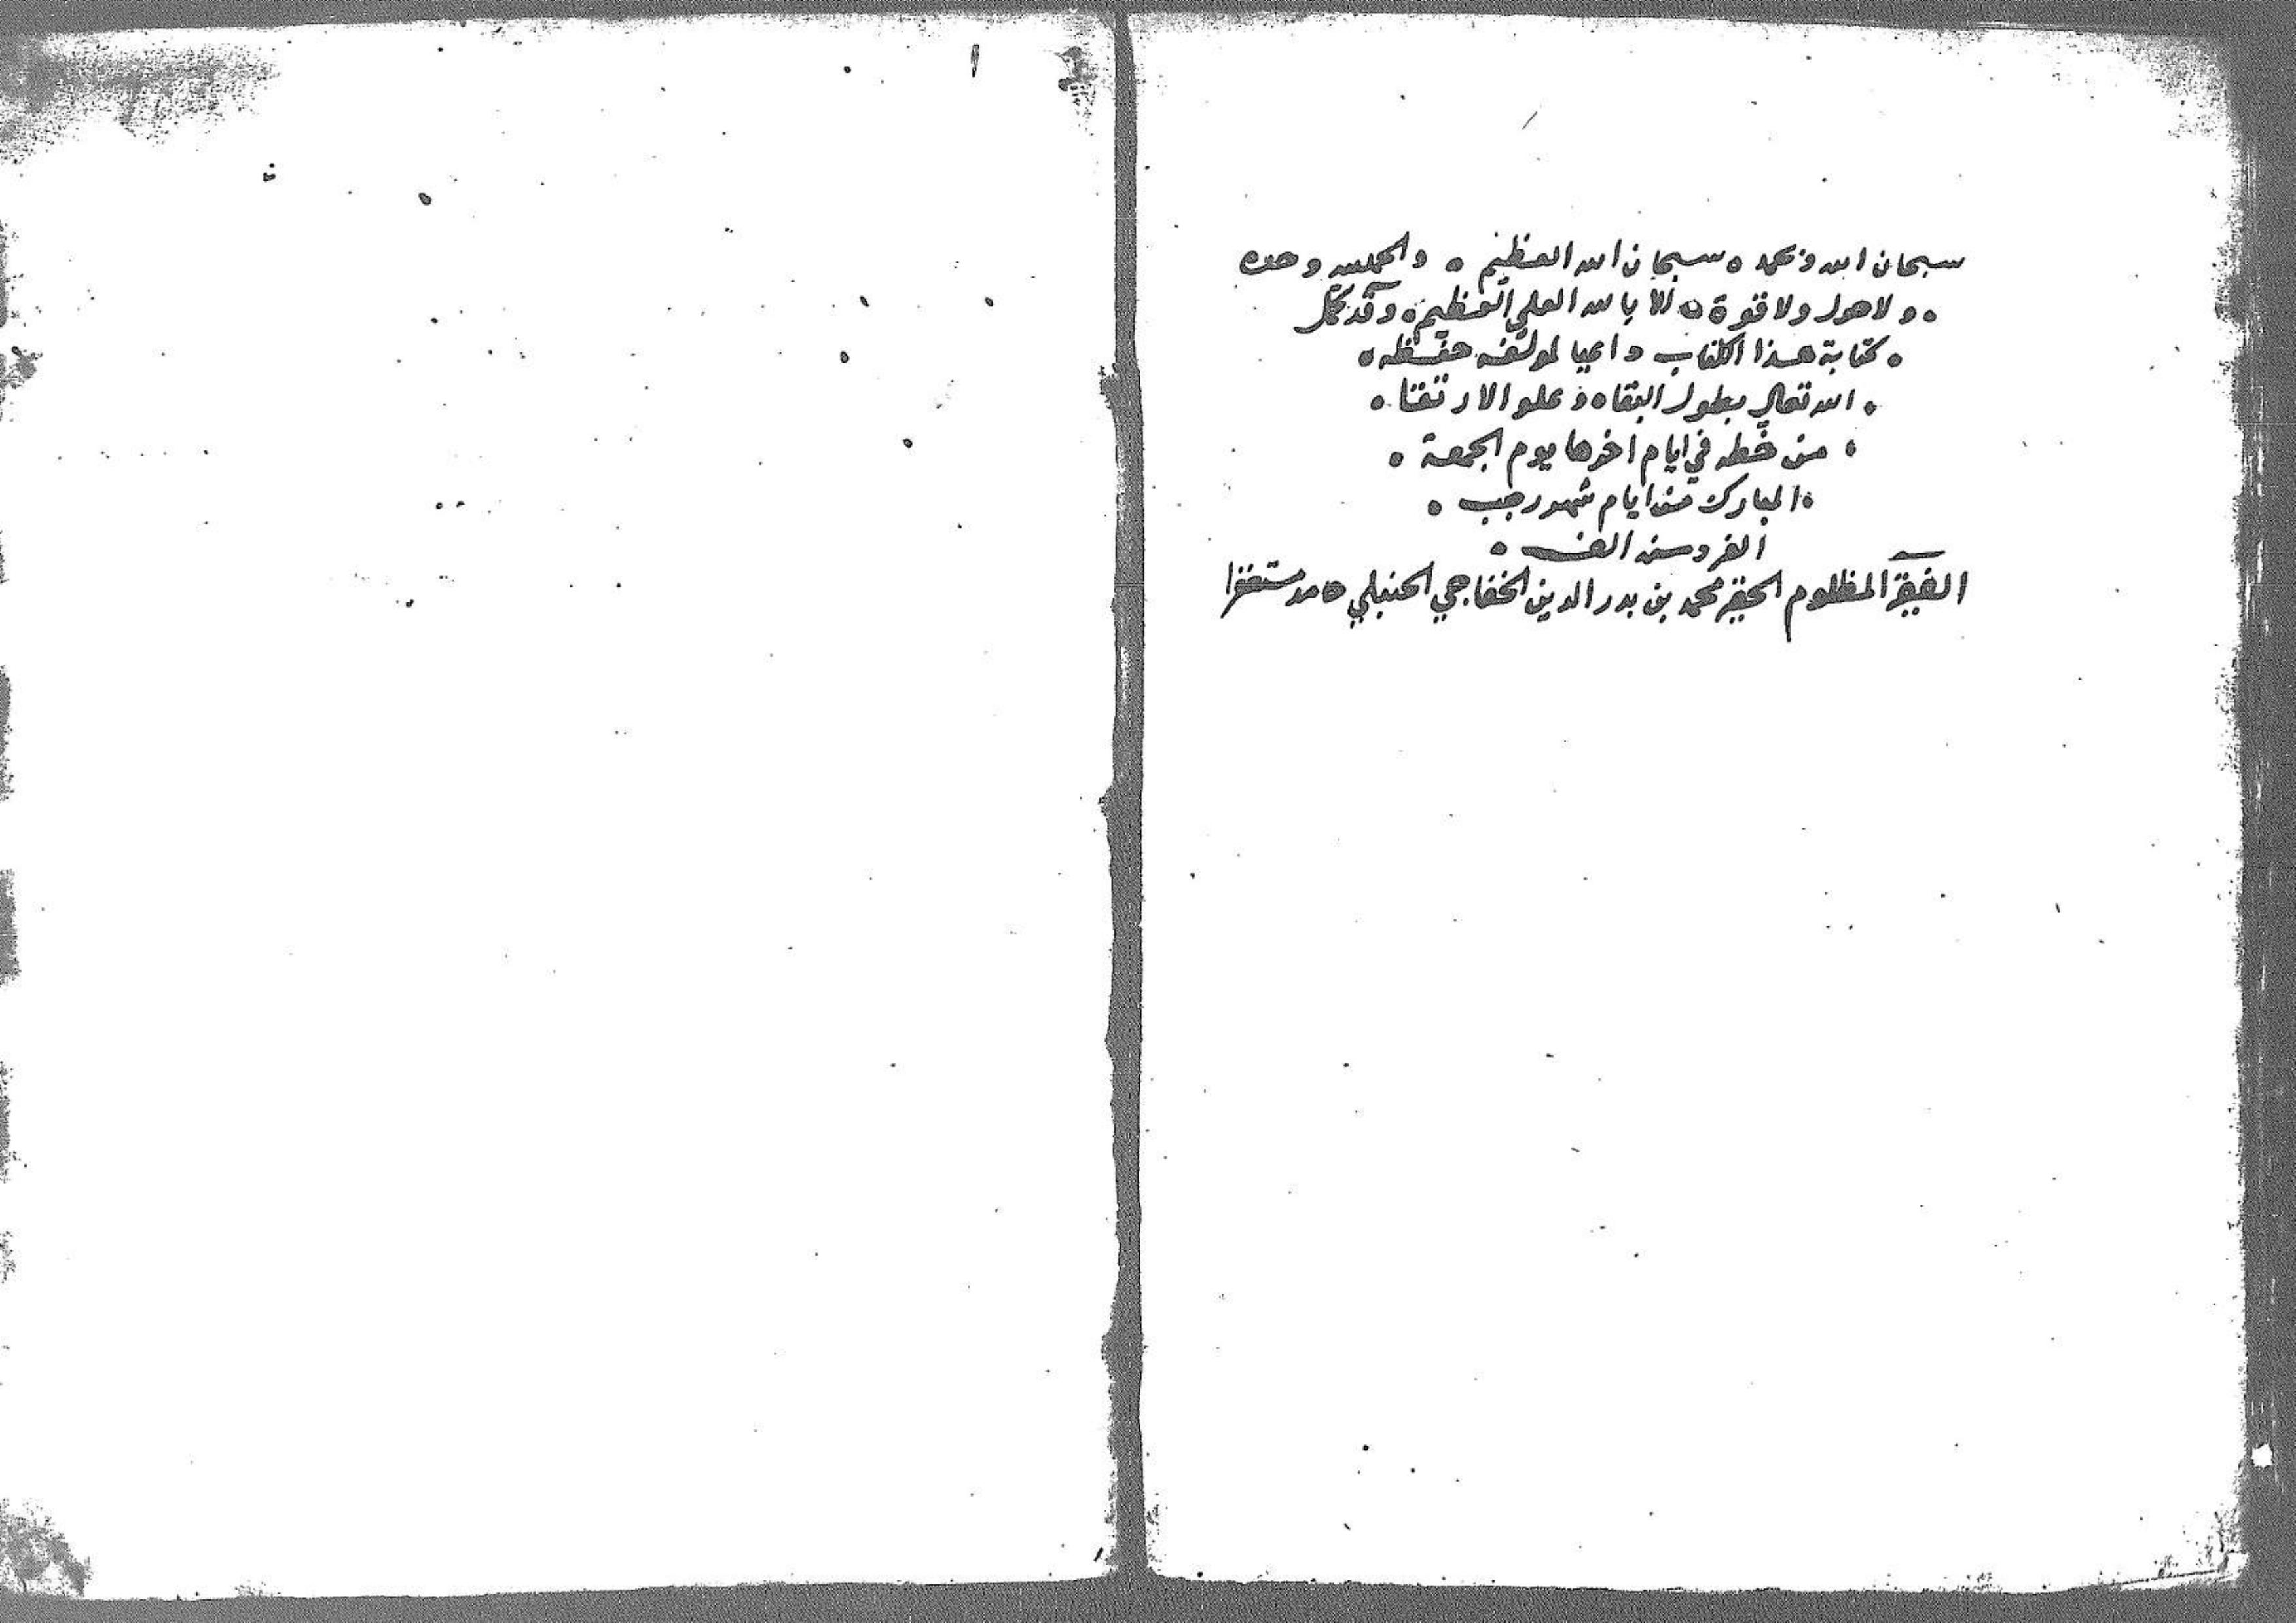 سبحان الله وبحمده سبحان الله العظيم ٥ والحمد لله وحده
٥ ولا حول ولا قوة ٥ الا بالله العلي العظيم ٥ وقد كمل
٥ كتابة هذا الكتاب داعيا لمولفه حفظه ٥
٥ الله تعالى بطول البقاه وعلو الارتقا ٥
٥ من خطه في ايام اخرها يوم الجمعة ٥
٥ المبارك من ايام شهر رجب ٥
الفرد سنه الف ٥
الفقير المظلوم الحقير محمد بن بدر الدين الخفاجي الحنبلي حامد مستغفرا
١